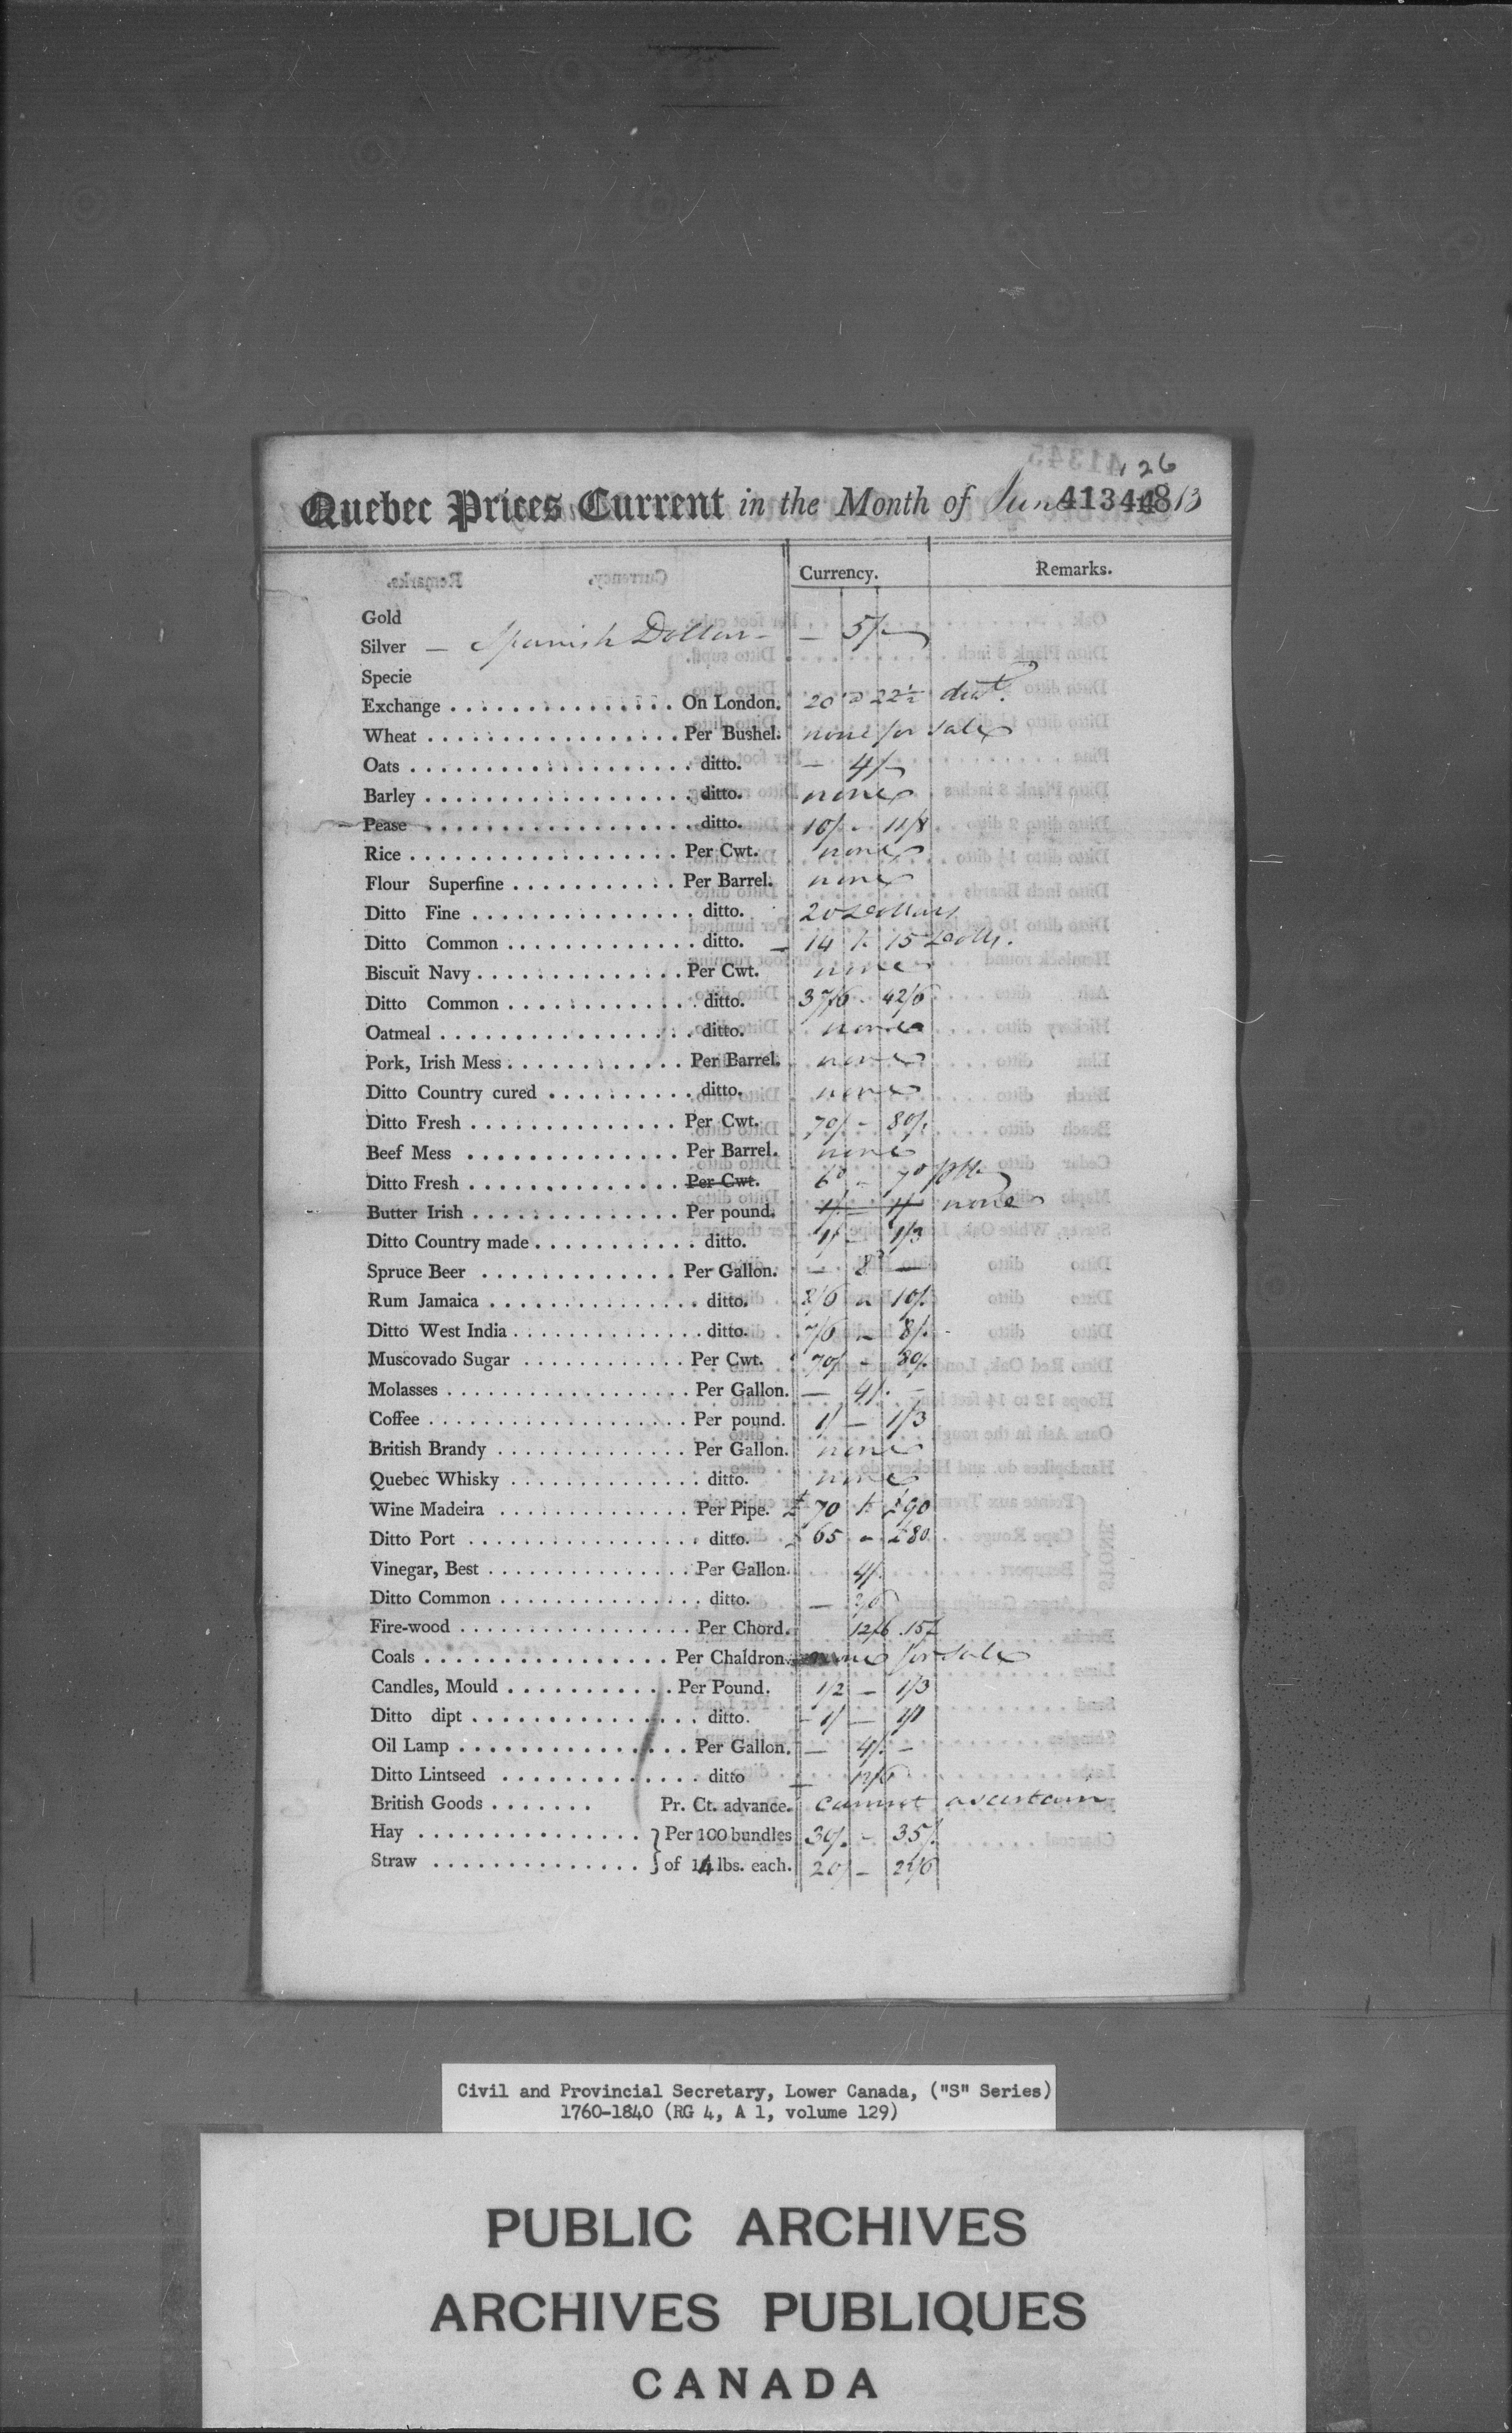 126
Quebec Prices Current in the Month of June 41344 1813
Currency. Remarks.
Gold
Silver — Spanish Dollars — — 5/—
Specie
Exchange . . . . On London. 20 a 22½ disct.
Wheat . . . . Per Bushel. none for sale
Oats . . . . ditto. — 4/—
Barley . . . . ditto. none
Pease . . . . ditto. 10/ - 11/8
Rice . . . . Per Cwt. none
Flour Superfine . . . . Per Barrel. none
Ditto Fine . . . . ditto. 20 Dollars
Ditto Common . . . . ditto. — 14 to 15 Dolls.
Biscuit Navy . . . . Per Cwt. none
Ditto Common . . . . ditto. 37/6 - 42/6
Oatmeal . . . . ditto. none
Pork, Irish Mess . . . . Per Barrel. none
Ditto Country cured . . . . ditto. none
Ditto Fresh . . . . Per Cwt. 70/ - 80/.
Beef Mess . . . . Per Barrel. none
Ditto Fresh . . . . Per Cwt. 6d - 7d
Butter Irish . . . . Per pound. 1/ — 1/ none
Ditto Country made . . . . ditto. 1/ - 1/3
Spruce Beer . . . . Per Gallon. — 8d —
Rum Jamaica . . . . ditto. 8/6 a 10/.
Ditto West India . . . . ditto. 7/6 - 8/.
Muscovado Sugar . . . . Per Cwt. 70/ - 80/.
Molasses . . . . Per Gallon. — 4/. -
Coffee . . . . Per pound. 1/ — 1/3
British Brandy . . . . Per Gallon. none
Quebec Whisky . . . . ditto. none
Wine Madeira . . . . Per Pipe. £70 to £90
Ditto Port . . . . ditto. £65 a £80
Vinegar, Best . . . . Per Gallon. 4/.
Ditto Common . . . . ditto. —
Fire-wood . . . . Per Chord. 12/6 15/
Coals . . . . Per Chaldron. none for sale
Candles, Mould . . . . Per Pound. 1/2 — 1/3
Ditto dipt . . . . ditto. - 1/ — 1/1
Oil Lamp . . . . Per Gallon. — 4/. -
Ditto Lintseed . . . . ditto — 12/6
British Goods . . . . Pr. Ct. advance. cannot ascertain
Hay . . . . } Per 100 bundles 30/. - 35/.
Straw . . . . } of 14 lbs. each. 20/ - 22/6
Civil and Provincial Secretary, Lower Canada, ("S" Series)
1760-1840 (RG 4, A 1, volume 129)
PUBLIC ARCHIVES
ARCHIVES PUBLIQUES
CANADA